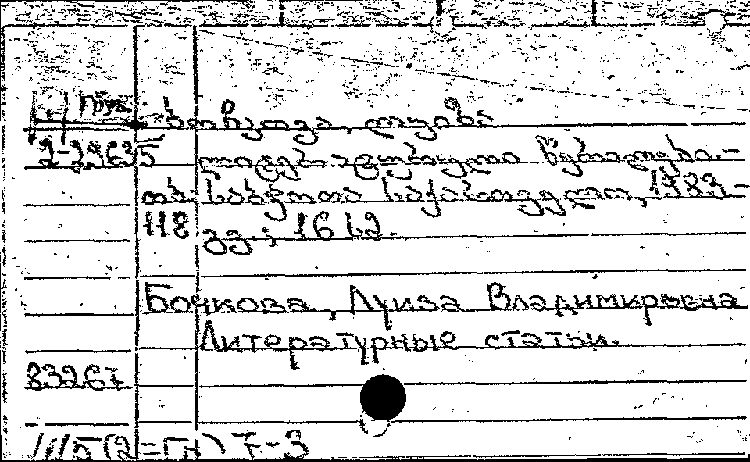 Груз.
ბოჩკოვა, ლუიზა
2-29635 ლიტერატურული წერილები.-
თბ: საბჭოთა საქართველო, 1983.-
118 გვ.; 16 სმ.
Бочкова, Луиза Владимировна
Литературные статьи.
83267